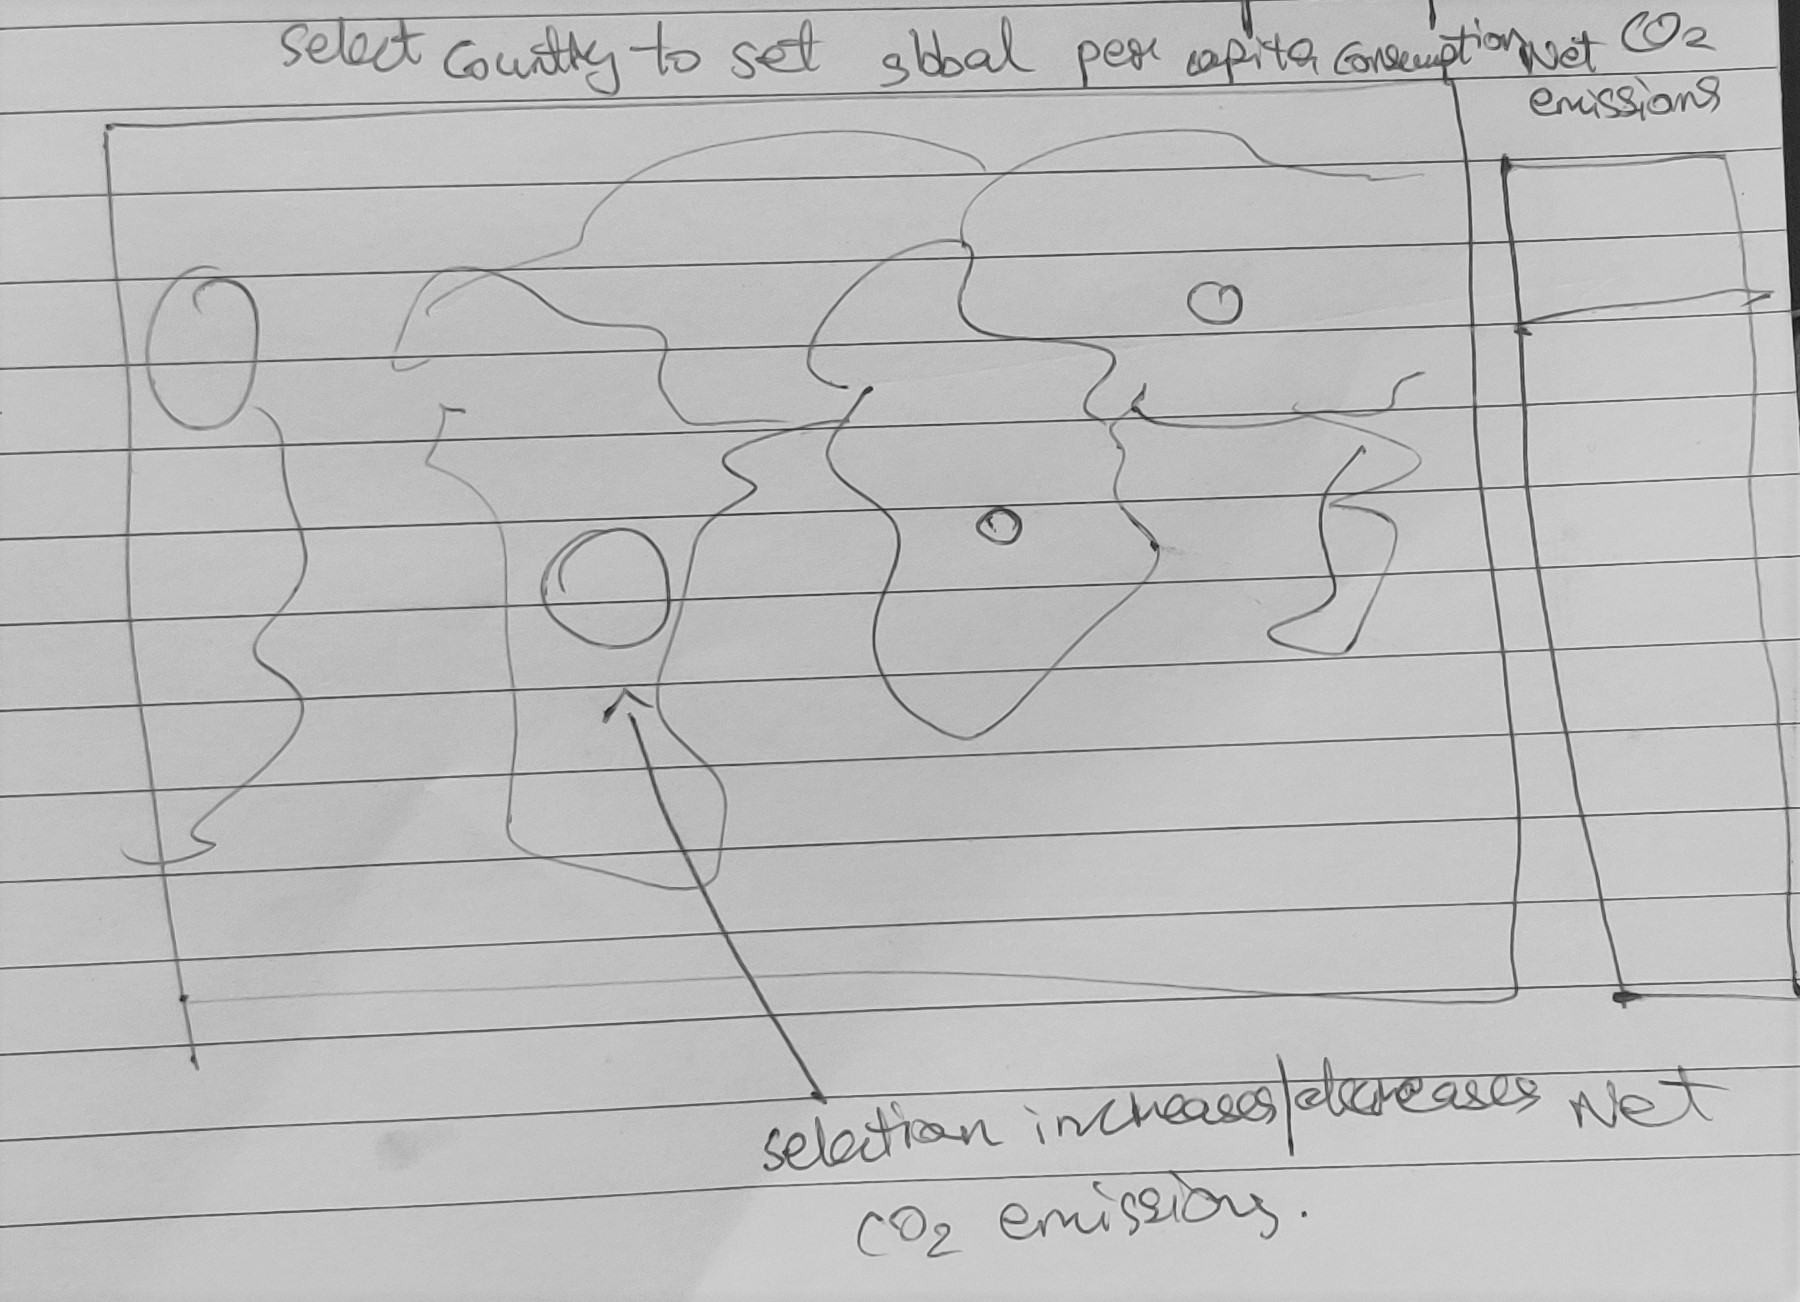 Select Country to set global per capita consumption
Net CO2
emissions
selection increases/decreases Net
CO2 emissions.